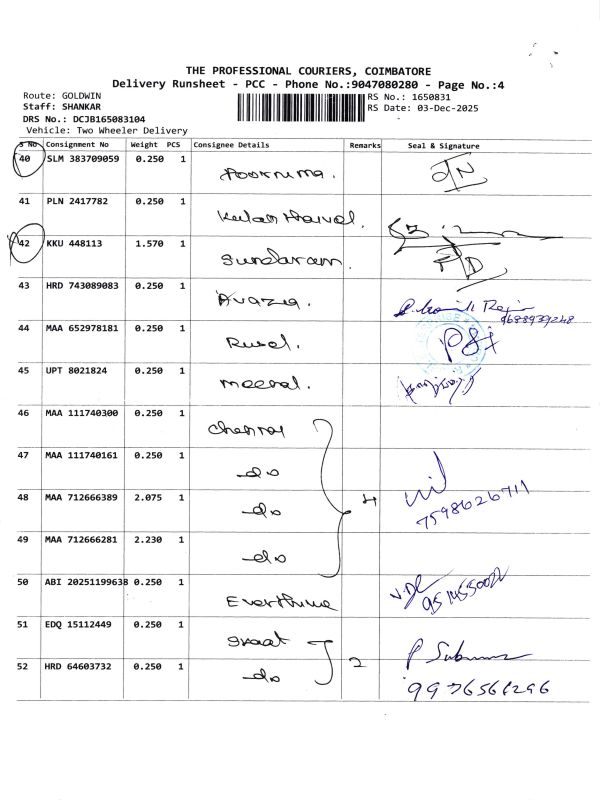 THE PROFESSIONAL COURIERS, COIMBATORE
Delivery Runsheet - PCC - Phone No.:9047080280 - Page No.:4
Route: GOLDWIN
Staff: SHANKAR
DRS No.: DCJB165083104
Vehicle: Two Wheeler Delivery
RS No.: 1650831
RS Date: 03-Dec-2025
S No Consignment No Weight PCS Consignee Details Remarks Seal & Signature
40 SLM 383709059 0.250 1 Poornima.
41 PLN 2417782 0.250 1
42 KKU 448113 1.570 1 Sundaram.
43 HRD 743089083 0.250 1
44 MAA 652978181 0.250 1
45 UPT 8021824 0.250 1 meeral.
46 MAA 111740300 0.250 1 Chennai
47 MAA 111740161 0.250 1 do
48 MAA 712666389 2.075 1 do 4 7598626711
49 MAA 712666281 2.230 1 do
50 ABI 20251199638 0.250 1
51 EDQ 15112449 0.250 1
52 HRD 64603732 0.250 1 do 2